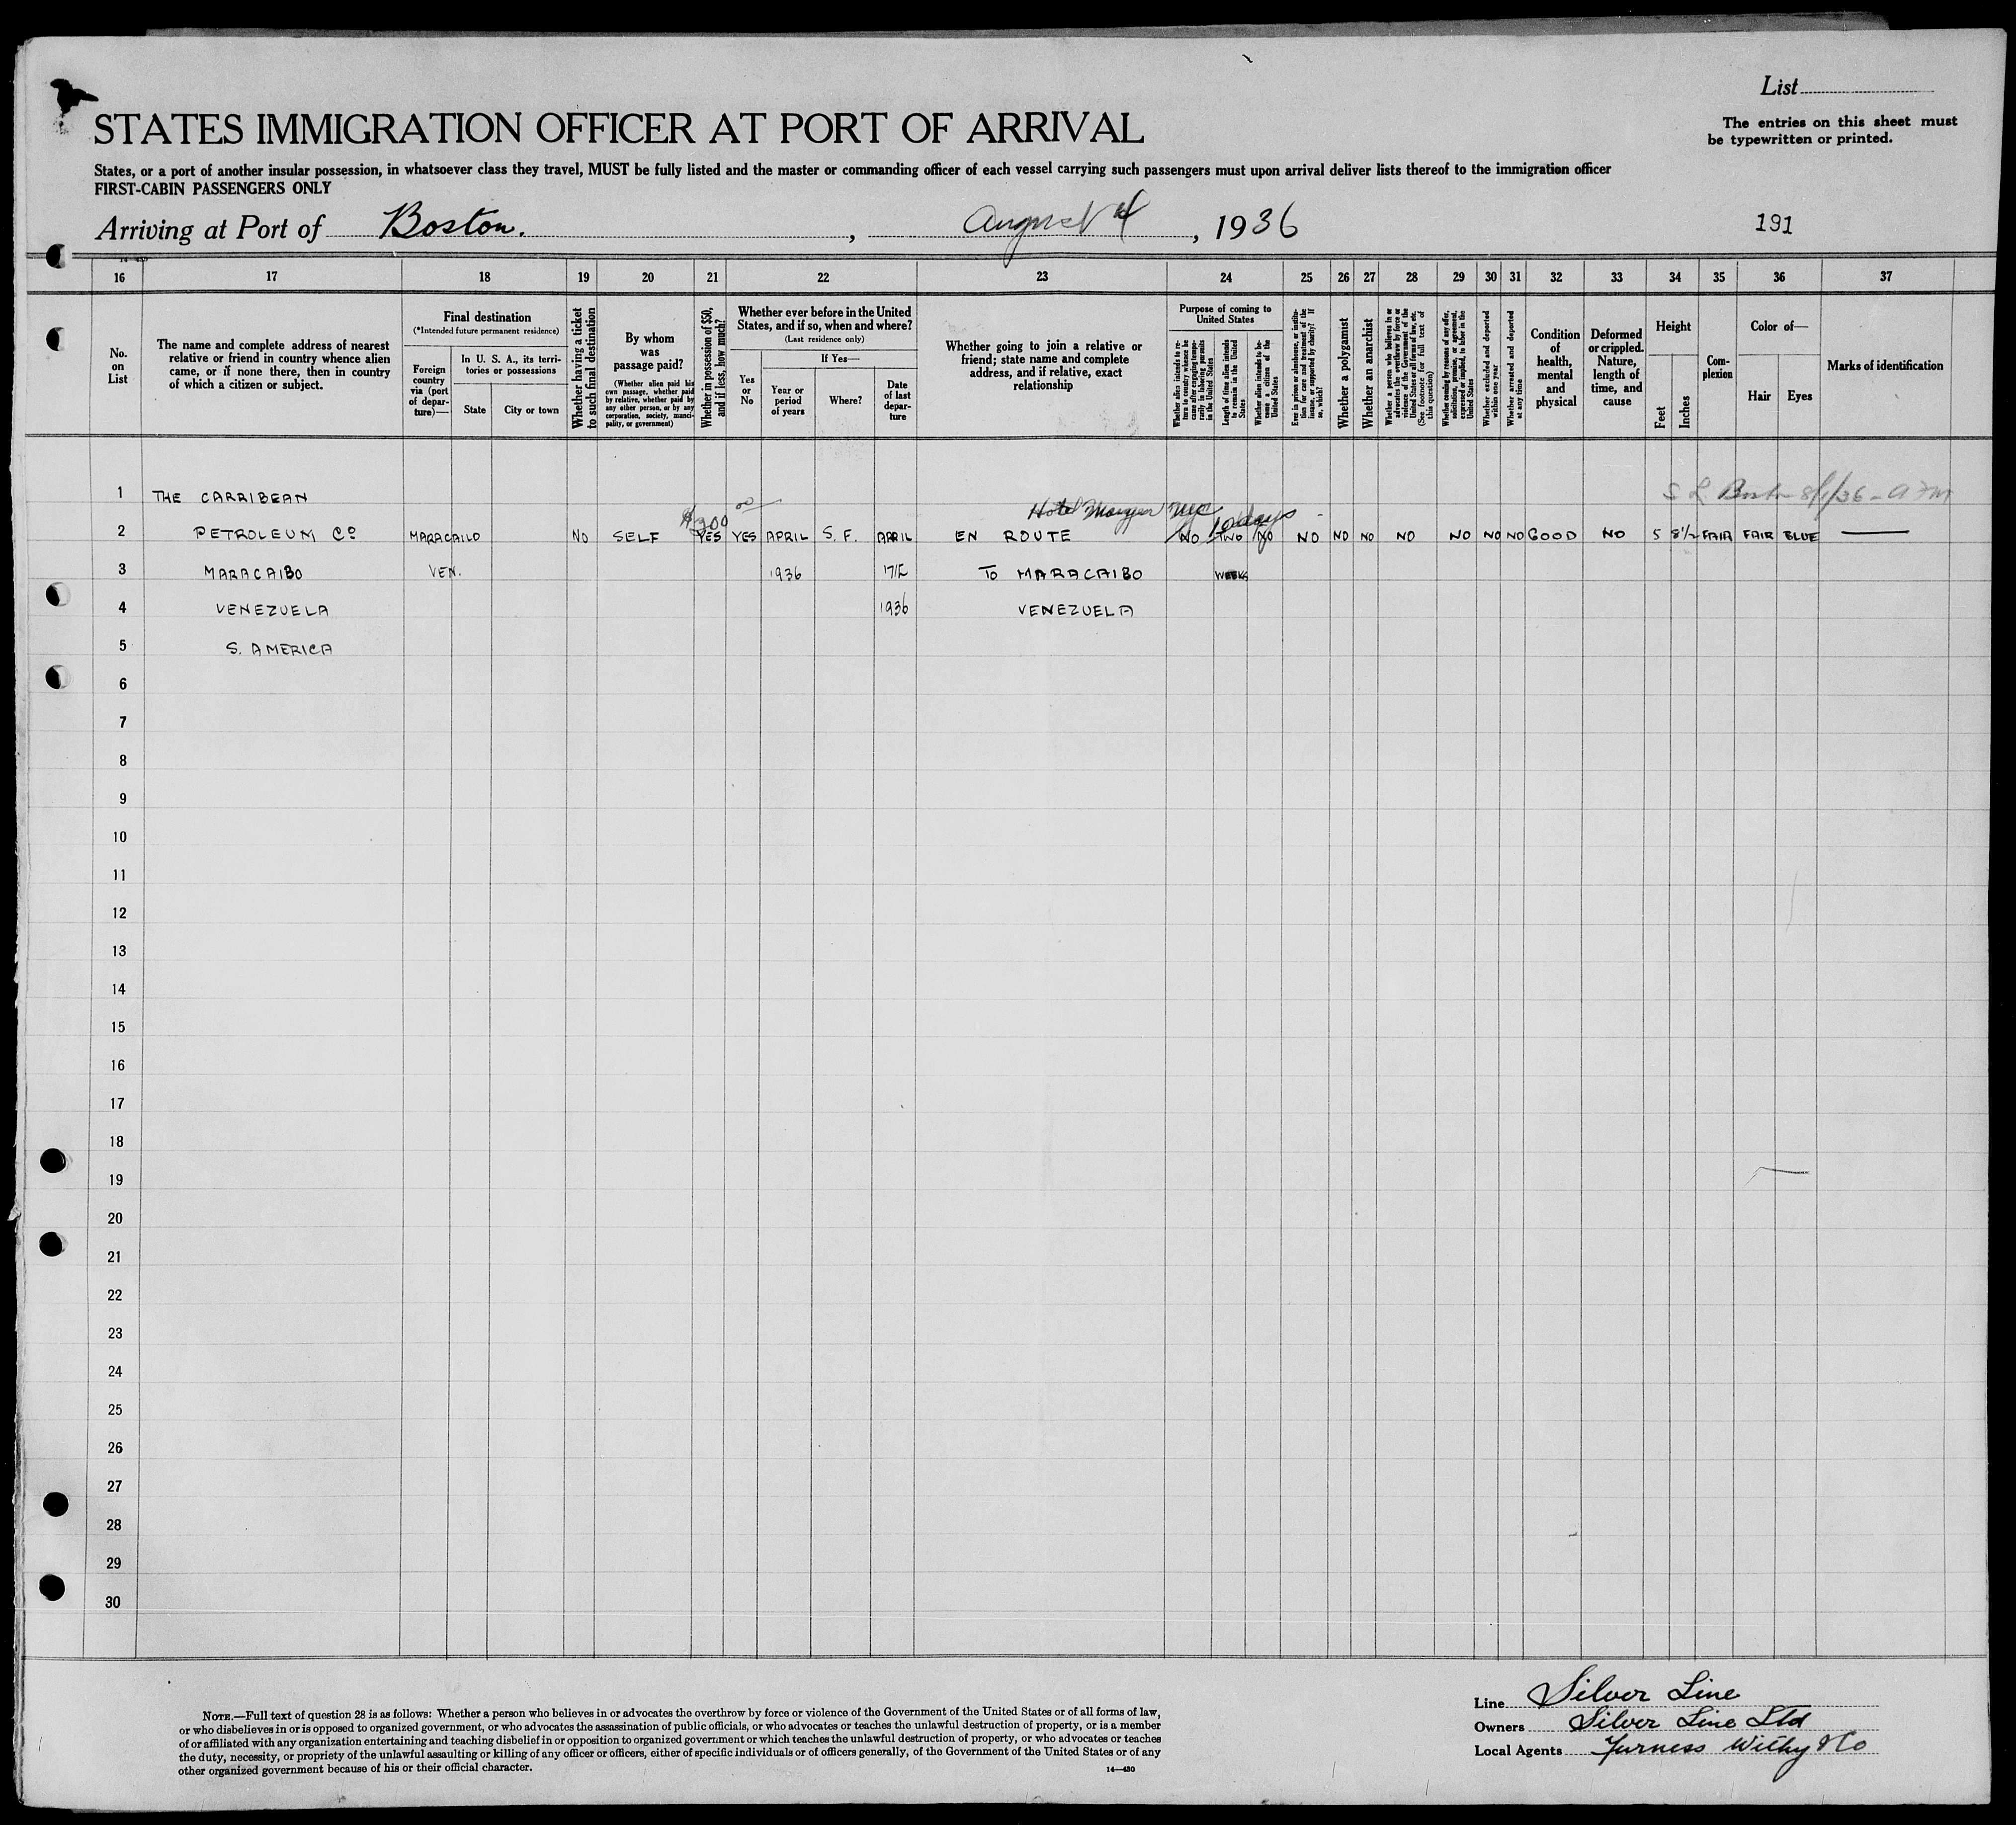 List
STATES IMMIGRATION OFFICER AT PORT OF ARRIVAL
The entries on this sheet must
be typewritten or printed.
States, or a port of another insular possession, in whatsoever class they travel, MUST be fully listed and the master or commanding officer of each vessel carrying such passengers must upon arrival deliver lists thereof to the immigration officer
FIRST-CABIN PASSENGERS ONLY
Arriving at Port of Boston. , August 4 , 1936
191
16 17 18 19 20 21 22 23 24 25 26 27 28 29 30 31 32 33 34 35 36 37
No. on List
The name and complete address of nearest relative or friend in country whence alien came, or if none there, then in country of which a citizen or subject.
Final destination
(*Intended future permanent residence)
Foreign country via (port of departure)—
In U. S. A., its territories or possessions
State
City or town
Whether having a ticket to such final destination
By whom was passage paid?
(Whether alien paid his own passage, whether paid by relative, whether paid by any other person, or by any corporation, society, municipality, or government)
Whether in possession of $50, and if less, how much?
Whether ever before in the United States, and if so, when and where?
(Last residence only)
Yes or No
If Yes—
Year or period of years
Where?
Date of last departure
Whether going to join a relative or friend; state name and complete address, and if relative, exact relationship
Purpose of coming to United States
Whether alien intends to return to country whence he came after engaging temporarily in laboring pursuits in the United States
Length of time alien intends to remain in the United States
Whether alien intends to become a citizen of the United States
Ever in prison or almshouse, or institution for care and treatment of the insane, or supported by charity? If so, which?
Whether a polygamist
Whether an anarchist
Whether a person who believes in or advocates the overthrow by force or violence of the Government of the United States or all forms of law, etc. (See footnote for full text of this question)
Whether coming by reason of any offer, solicitation, promise, or agreement, expressed or implied, to labor in the United States
Whether excluded and deported within one year
Whether arrested and deported at any time
Condition of health, mental and physical
Deformed or crippled. Nature, length of time, and cause
Height
Feet
Inches
Complexion
Color of—
Hair
Eyes
Marks of identification
1 THE CARRIBEAN Boston
Hotel NYC
$200 10 days
2 PETROLEUM Co MARACAILO NO SELF YES YES APRIL S. F. APRIL EN ROUTE NO TWO NO NO NO NO NO NO NO NO GOOD NO 5 8½ FAIR FAIR BLUE —
3 MARACAIBO VEN. 1936 TO MARACAIBO WEEKS
4 VENEZUELA 1936 VENEZUELA
5 S. AMERICA
6
7
8
9
10
11
12
13
14
15
16
17
18
19
20
21
22
23
24
25
26
27
28
29
30
NOTE.—Full text of question 28 is as follows: Whether a person who believes in or advocates the overthrow by force or violence of the Government of the United States or of all forms of law,
or who disbelieves in or is opposed to organized government, or who advocates the assassination of public officials, or who advocates or teaches the unlawful destruction of property, or is a member
of or affiliated with any organization entertaining and teaching disbelief in or opposition to organized government or which teaches the unlawful destruction of property, or who advocates or teaches
the duty, necessity, or propriety of the unlawful assaulting or killing of any officer or officers, either of specific individuals or of officers generally, of the Government of the United States or of any
other organized government because of his or their official character.
14—430
Line Silver Line
Owners Silver Line Ltd
Local Agents Furness Withy & Co